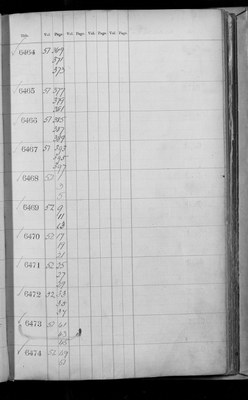 No. Vol. Page. Vol. Page. Vol. Page. Vol. Page.
6464 51 369
371
373
6465 51 377
379
381
6466 51 385
387
389
6467 51 393
395
397
6468 52 1
3
5
6469 52 9
11
13
6470 52 17
19
21
6471 52 25
27
29
6472 52 33
35
37
6473 52 41
43
45
6474 52 49
51